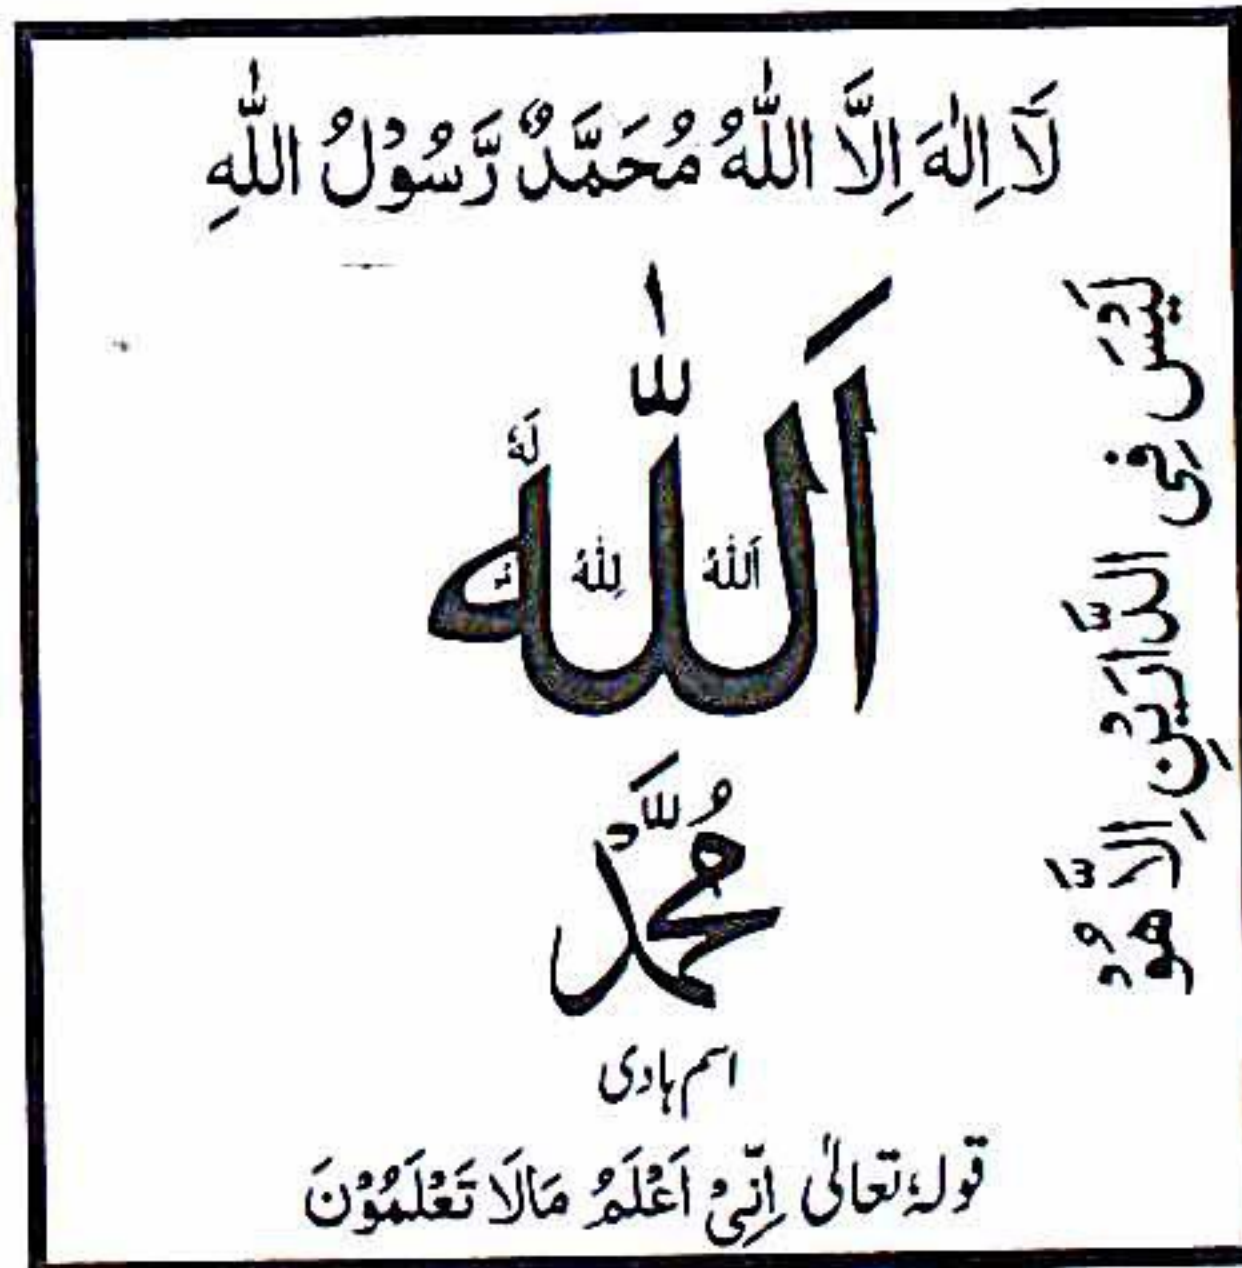 لَآ اِلٰهَ اِلَّا اللّٰهُ مُحَمَّدٌ رَّسُوْلُ اللّٰهِ
لَيْسَ فِى الدَّارَيْنِ اِلَّا هُوْ
اَللّٰه
لَهٗ
اَللّٰهُ لِلّٰهُ
مُحَمَّدْ
اسم ہادی
قولہٗ تعالیٰ اِنِّیْ اَعْلَمُ مَالَا تَعْلَمُوْنَ